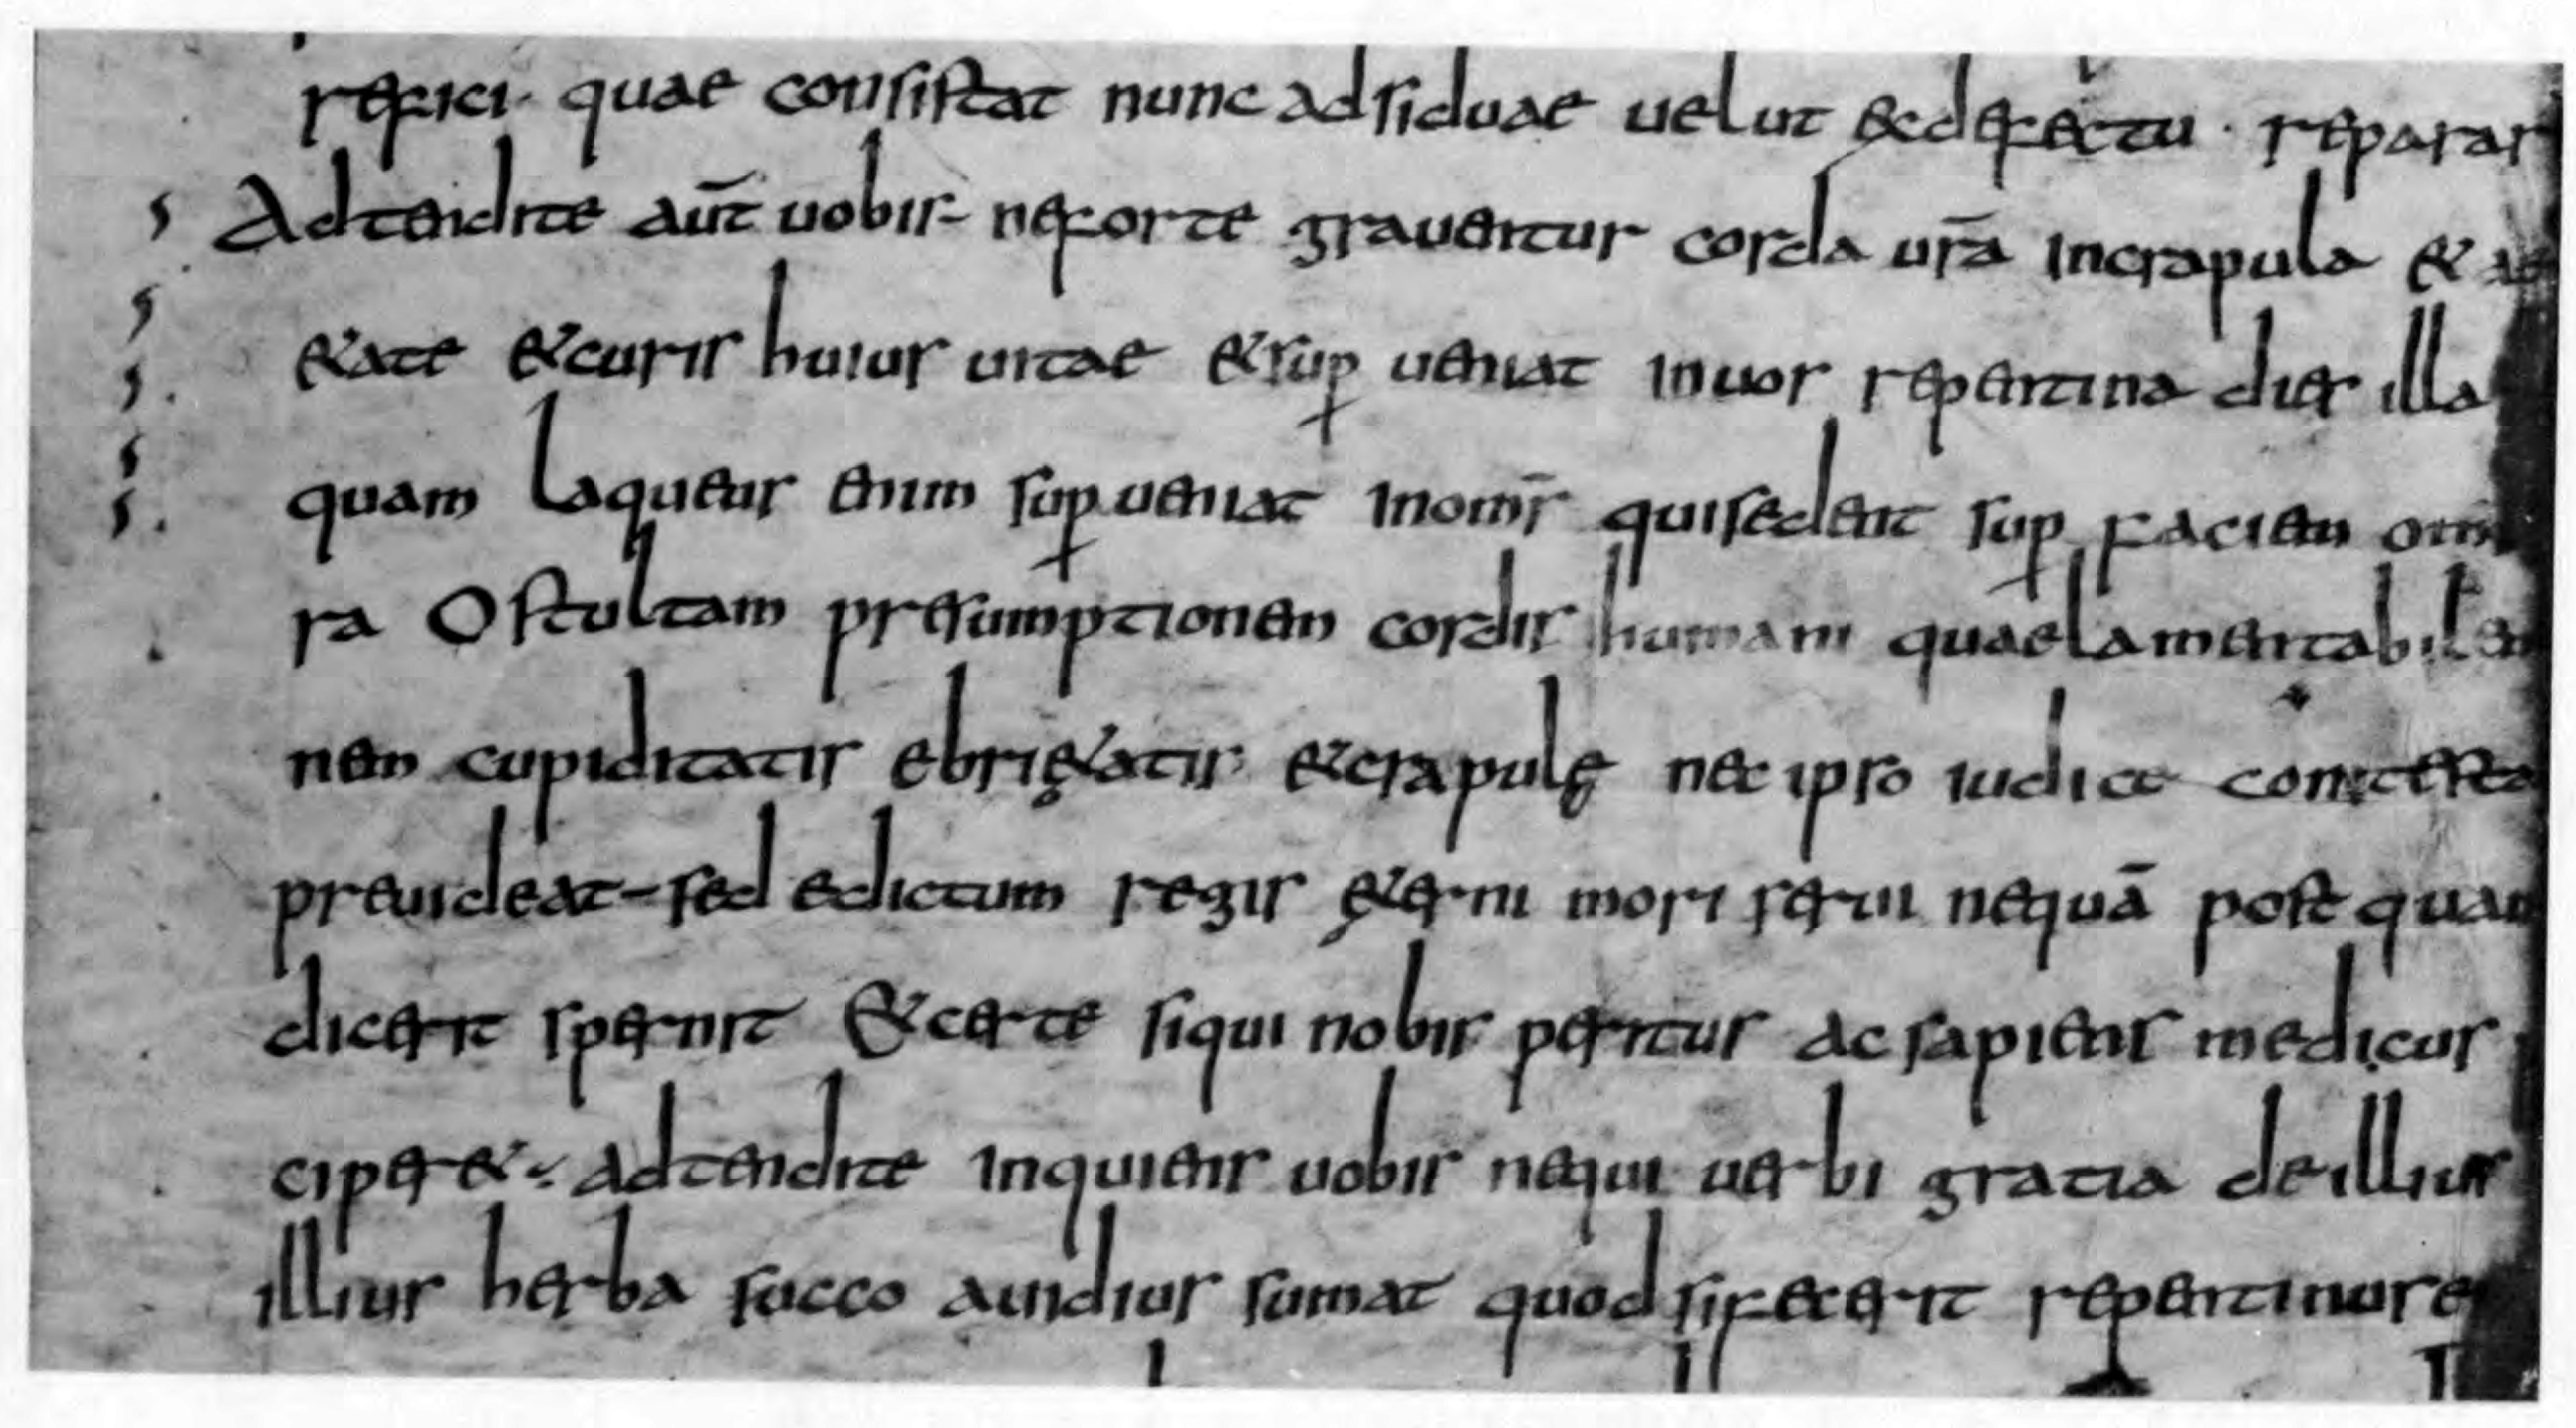 refici · quae consistat nunc adsiduae uelut & defectu · reparar
Adtendite aut̄ uobis ne forte grauentur corda ur̄a in crapula &
&ate & curis huius uitae & sup̱ ueniat in uos repentina dies illa
quam laqueus enim sup̱ueniat in om̄s qui sedent sup̱ faciem om
ra O stultam presumptionem cordis humani quae lamentabilem
nem cupiditatis ebrię&atis & crapulę nec ipso iudice
preuideat sed edictum regis ę&erni mori serui nequā postquam
dicerit spernit & certe siqui nobis peritus ac sapiens medicus
ciper& · adtendite inquiens uobis nequi uerbi gratia de illius
illius herba succo auidius sumat quod si fecerit repentinus e